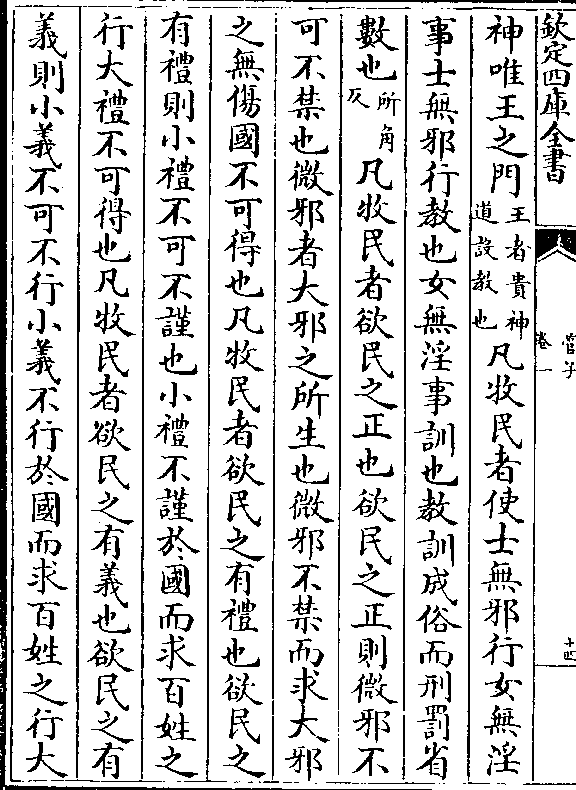 欽定四庫全書
管子
卷一
十四
神唯王之門王者貴神道設教也凡牧民者使士無邪行女無淫
事士無邪行教也女無淫事訓也教訓成俗而刑罰省
數也所角反凡牧民者欲民之正也欲民之正則微邪不
可不禁也微邪者大邪之所生也微邪不禁而求大邪
之無傷國不可得也凡牧民者欲民之有禮也欲民之
有禮則小禮不可不謹也小禮不謹於國而求百姓之
行大禮不可得也凡牧民者欲民之有義也欲民之有
義則小義不可不行小義不行於國而求百姓之行大